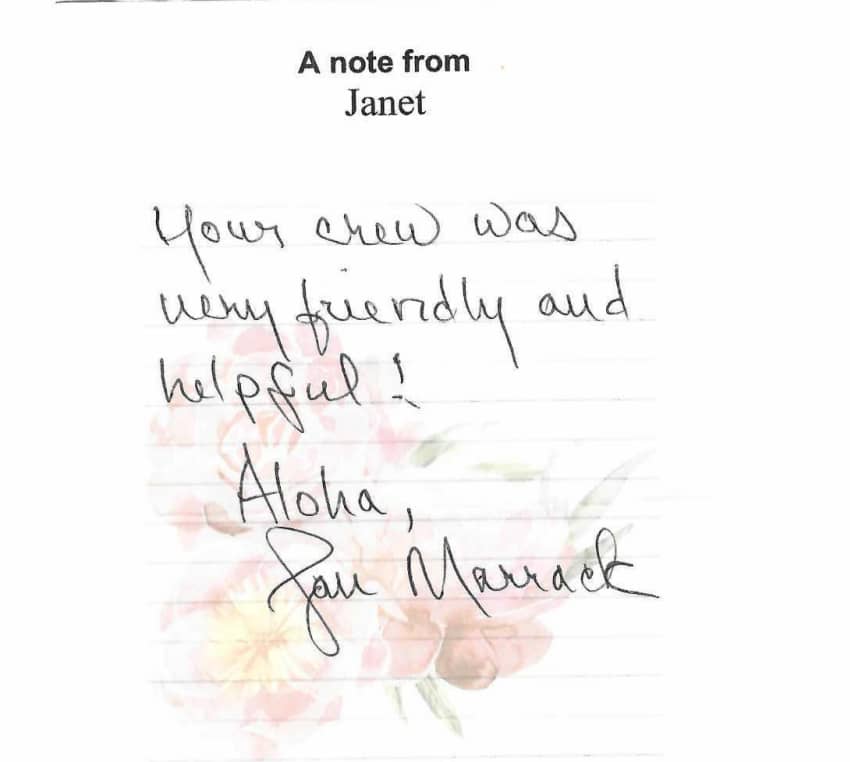 A note from
Janet
Your crew was
very friendly and
helpful!
Aloha,
Jan Marrack